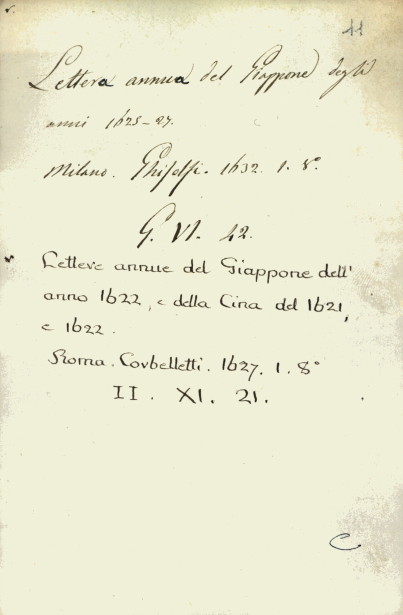 44
Lettera annua del Giappone degli
anni 1625-27.
Milano. Ghisolfi. 1632. 1. 8°
G. VI. 42.
Lettere annue del Giappone dell'
anno 1622, e della Cina del 1621,
e 1622.
Roma. Corbelletti. 1627. 1. 8°
II. XI. 21.
C